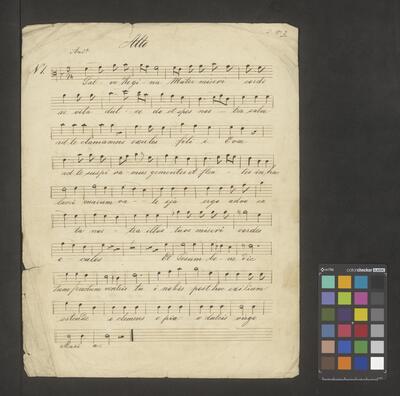 Alto
And.te
N 1.
Sal ve Regi na Mater miseri cordi
ae vita dul ce do et spes nos tra salve
ad te clamamus exules filii E vae
ad te suspi ramus gementes et flen tes in hac
lacri marum val le eja ergo advo ca
ta nos tra illos tuos miseri cordes
o culos Et Jesum be ne dic
tum fructum ventris tu i nobis post hoc exilium
ostende o clemens o pia o dulcis virgo
Mari a